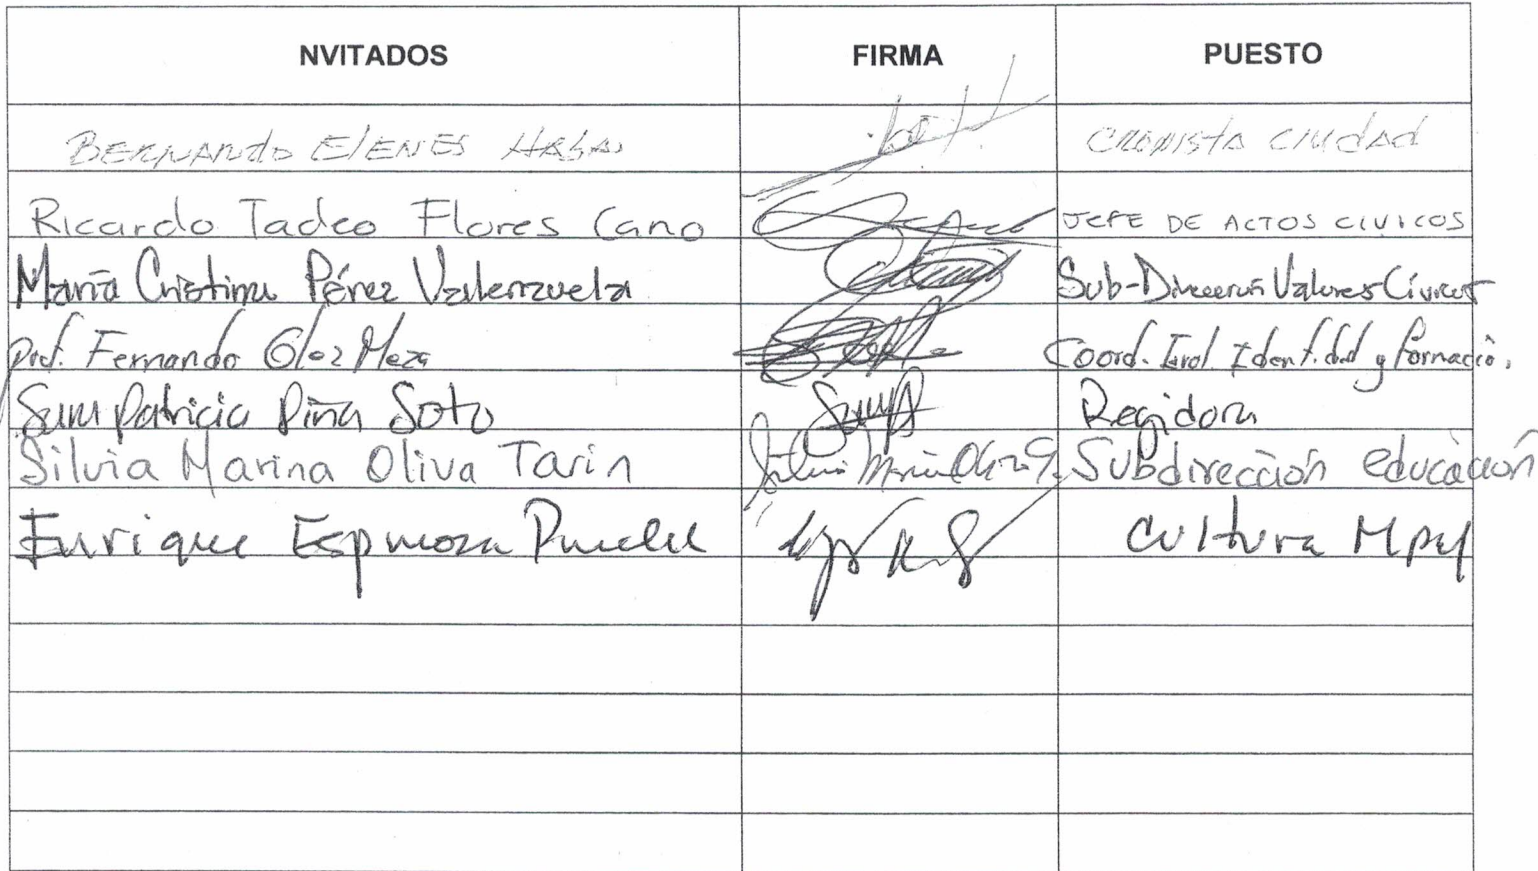 NVITADOS FIRMA PUESTO
BERNARDO ElENES HABAS CRONISTA CIUDAD
Ricardo Tadeo Flores Cano JEFE DE ACTOS CIVICOS
María Cristina Pérez Valenzuela Sub-Dirección Valores Cívicos
Prof. Fernando Glez Meza Coord. Gral. Identidad y formació.
Patricia Piña Soto Regidora
Silvia Marina Oliva Tarin Subdirección educación
Enrique Espinoza Cultura Mpal